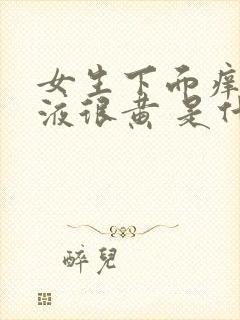 女生下面痒
液很黄 是什
醉兒